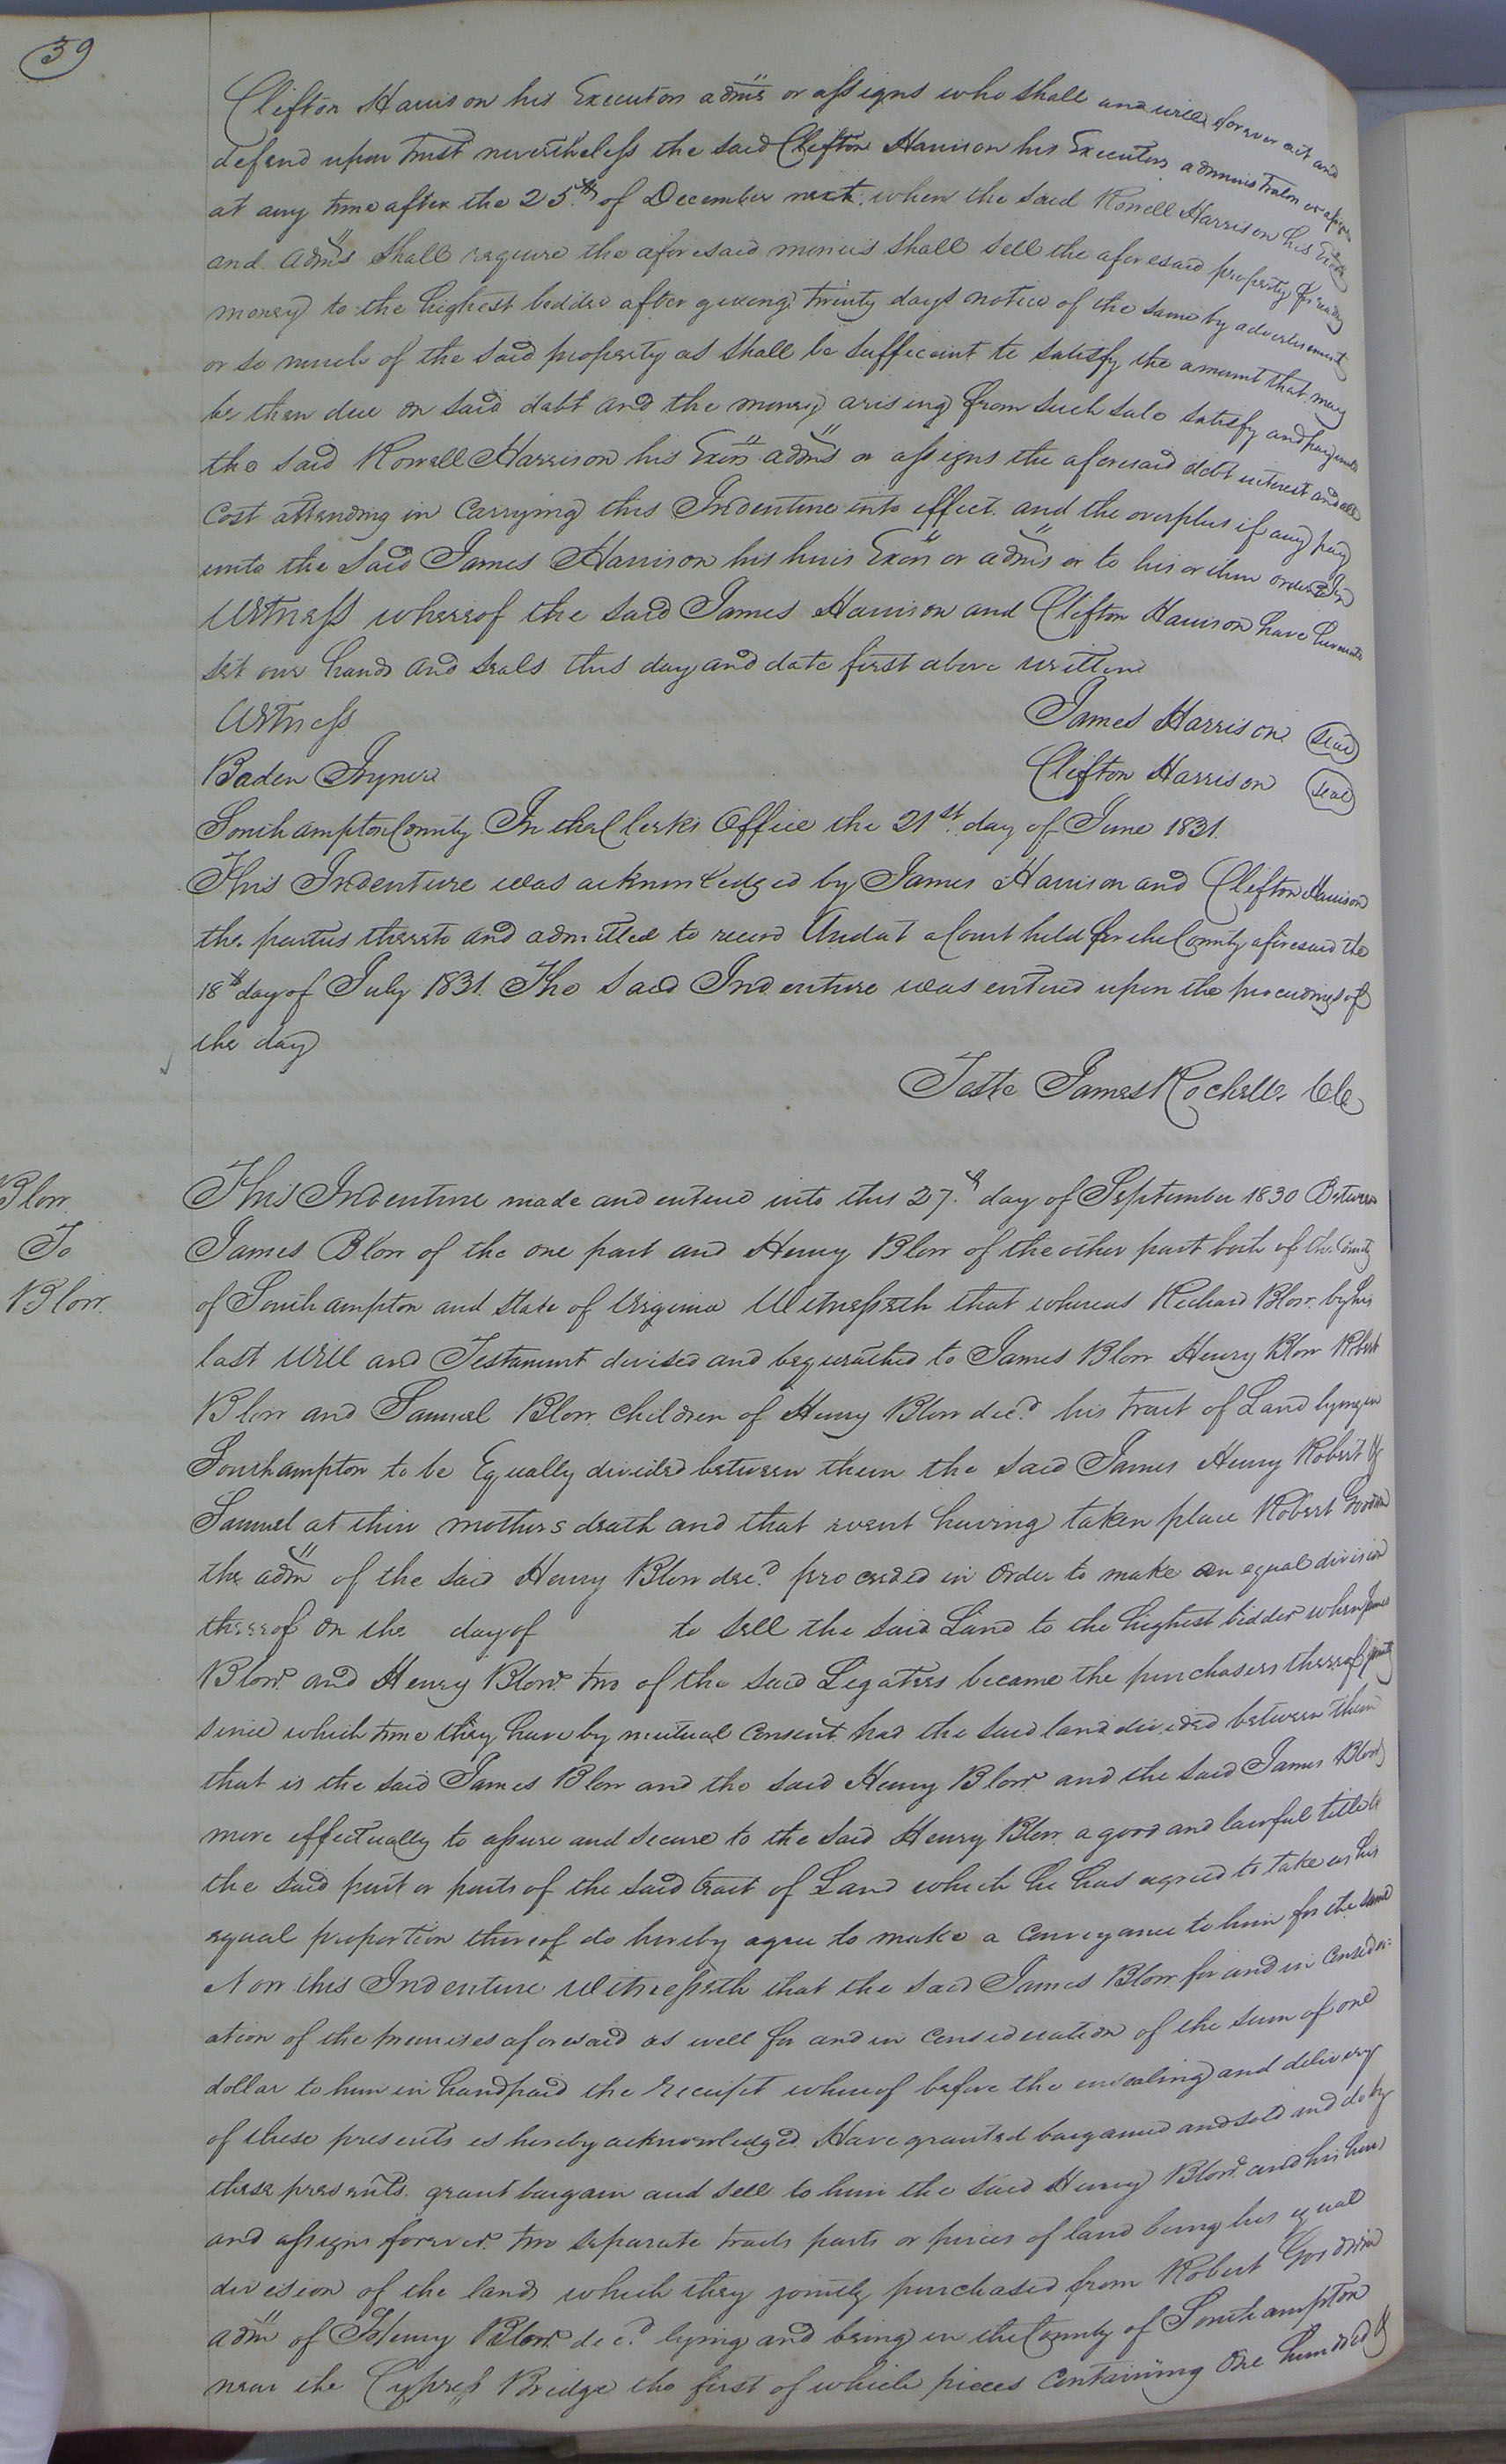 39
Clifton Harrison his Executors adm's or assigns who shall and will forever act and
defend upon Trust nevertheless the said Clifton Harrison his Executors administrators or assigns
at any time after the 25th of December next when the said Rowell Harrison his Exors
and adm's shall require the aforesaid monies shall sell the aforesaid property for ready
money to the highest bidder after giving twenty days notice of the same by advertisement
or so much of the said property as shall be sufficient to satisfy the amount that may
be then due on said debt and the money arising from such sale satisfy and pay unto
the said Rowell Harrison his Exors adm's or assigns the aforesaid debt interest and all
Cost attending in Carrying this Indenture into effect and the overplus if any pay
unto the said James Harrison his heirs Exors or adm's or to his or their order In
Witness whereof the said James Harrison and Clifton Harrison have hereunto
set our hands and seals this day and date first above written
Witness
James Harrison seal
Baden Joyner
Clifton Harrison seal
Southampton County In the Clerks Office the 21st day of June 1831.
This Indenture was acknowledged by James Harrison and Clifton Harrison
the parties thereto and admitted to record And at a Court held for the County aforesaid the
18th day of July 1831. The said Indenture was entered upon the proceedings of
the day
Teste James Rochelle Clk
Blow
To
Blow
This Indenture made and entered into this 27th day of September 1830 Between
James Blow of the one part and Henry Blow of the other part both of the County
of Southampton and State of Virginia Witnesseth that whereas Richard Blow by his
last Will and Testament devised and bequeathed to James Blow Henry Blow Robert
Blow and Samuel Blow children of Henry Blow decd his tract of Land lying in
Southampton to be Equally divided between them the said James Henry Robert &
Samuel at their mothers death and that event having taken place Robert Goodwin
the adm of the said Henry Blow decd proceeded in Order to make an equal division
thereof on the day of to sell the said Land to the highest bidder when James
Blow and Henry Blow two of the said Legatees became the purchasers thereof jointly
since which time they have by mutual Consent had the said land divided between them
that is the said James Blow and the said Henry Blow and the said James Blow
more effectually to assure and secure to the said Henry Blow a good and lawful title to
the said part or parts of the said tract of Land which he has agreed to take as his
equal proportion thereof do hereby agree to make a Conveyance to him for the same
Now this Indenture Witnesseth that the said James Blow for and in Consider-
ation of the premises aforesaid as well for and in Consideration of the sum of one
dollar to him in hand paid the receipt whereof before the ensealing and delivery
of these presents is hereby acknowledged Have granted bargained and sold and do by
these presents grant bargain and sell to him the said Henry Blow and his heirs
and assigns forever two separate tracts parts or pieces of land being his equal
division of the land which they jointly purchased from Robert Goodwin
adm of Henry Blow decd lying and being in the County of Southampton
near the Cypress Bridge the first of which pieces Containing One hundred &